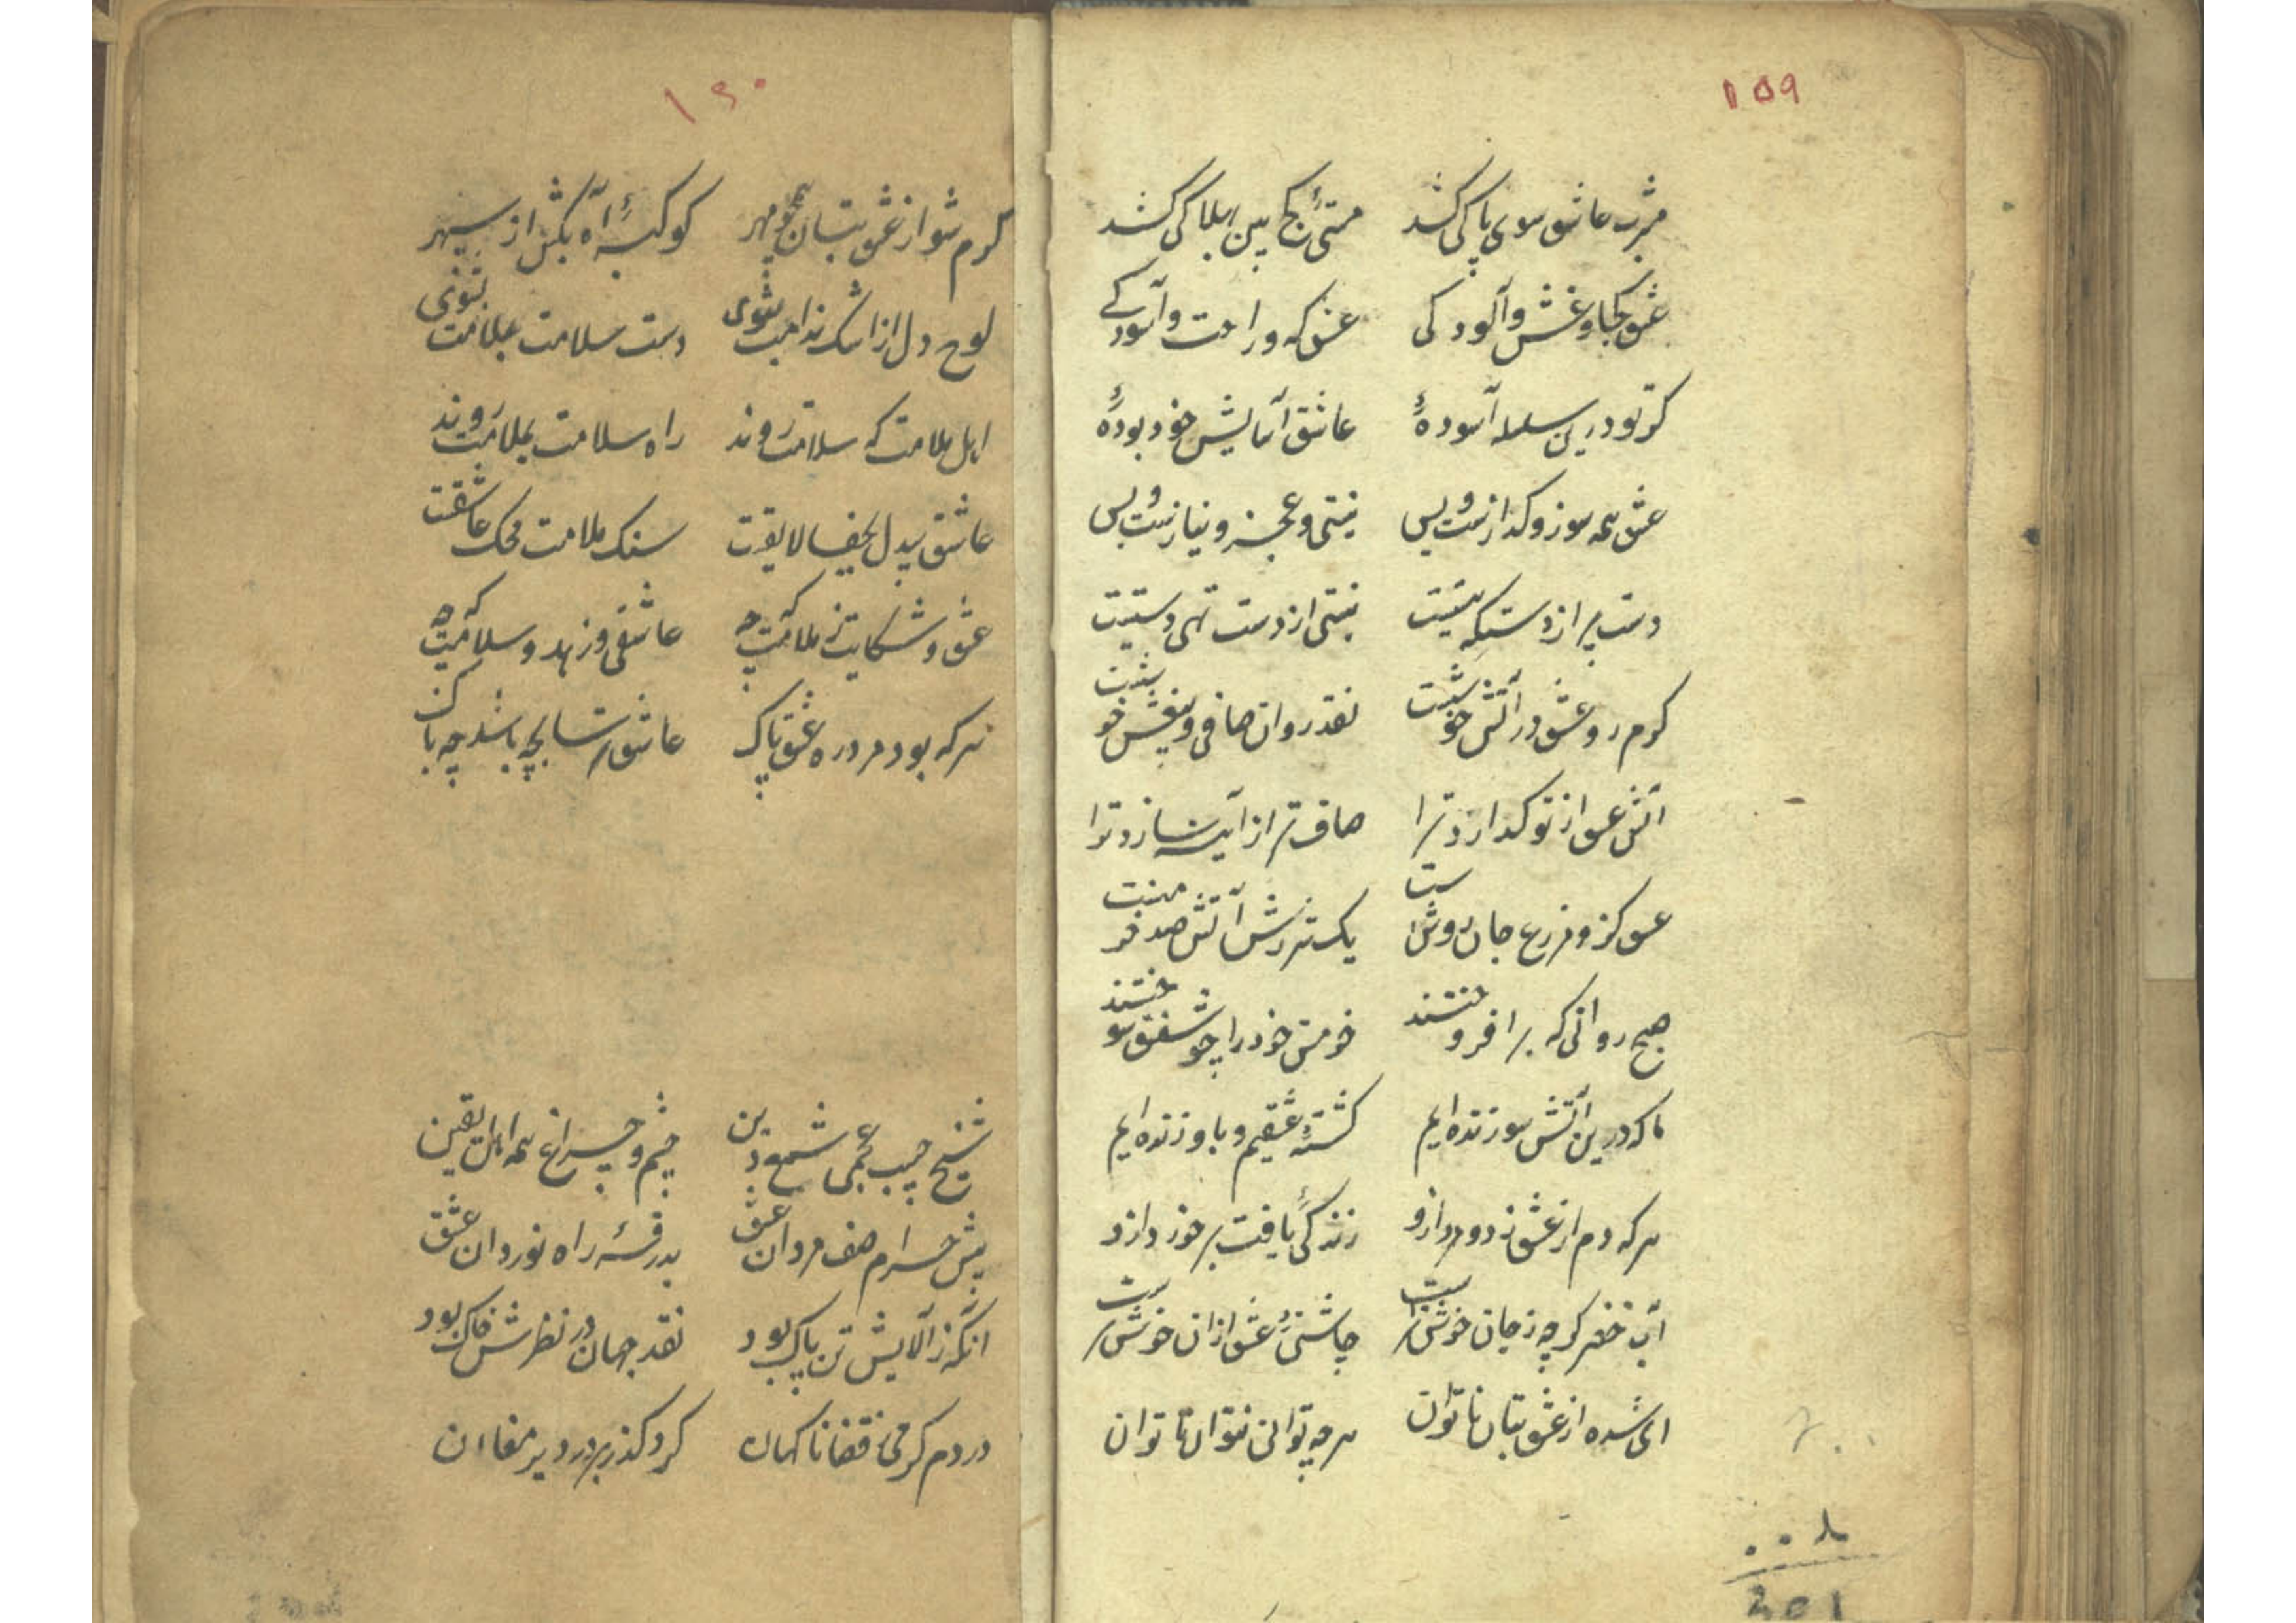 ۱۵۹
مشرب عاشق سوی پاکی کشد مستی کج بین بهلاکی کشد
عشق کجا و غش و آلودگی عشق که و راحت و آسودگی
گر تو درین سلسله آسودهٔ عاشق آسایش خود بودهٔ
عشق همه سوز و گدازست و بس نیستی و عجز و نیازست و بس
دست پر از دستگه نیستیست نیستی از دست تهی دستیست
گرم رو عشق در آتش خوشست نقد روان صافی و بیغش خوشست
آتش عشق از تو گدازد ترا صاف تر از آینه سازد ترا
عشق کزو مزرع جان روشنست یک شررش آتش صد خرمنست
صبح روانی که برافروختند خرمن خود را چو شفق سوختند
ما که درین آتش سوزنده‌ایم کشتهٔ عشقیم و باو زنده‌ایم
هر که دم از عشق زد و مرد ازو زندگی یافت برخورد ازو
آب خضر گرچه ز جان خوشترست چاشنی عشق ازان خوشترست
ای شده از عشق بتان ناتوان هرچه توانی نتوان ناتوان
۱۶۰
گرم شو از عشق بتان چو مهر کوکبهٔ آه بکش از سپهر
لوح دل از اشک ندامت بشوی دست سلامت بملامت بشوی
اهل ملامت که سلامت روند راه سلامت بملامت روند
عاشق بیدل بجفا لایقست سنک ملامت محک عاشقست
عشق و شکایت ز ملامت که چه عاشقی و زهد و سلامت که چه
هر که بود مرد ره عشق پاک عاشق رسا بچه باشد چه باک
شیخ حبیب عجمی شمع دین چشم و چراغ همه اهل یقین
پیش حرام صف مردان عشق بدرقهٔ راه نوردان عشق
آنکه ز آلایش تن پاک بود نقد جهان در نظرش خاک بود
در دم گرمی قضا ناگهان کرد گذر بر در دیر مغان